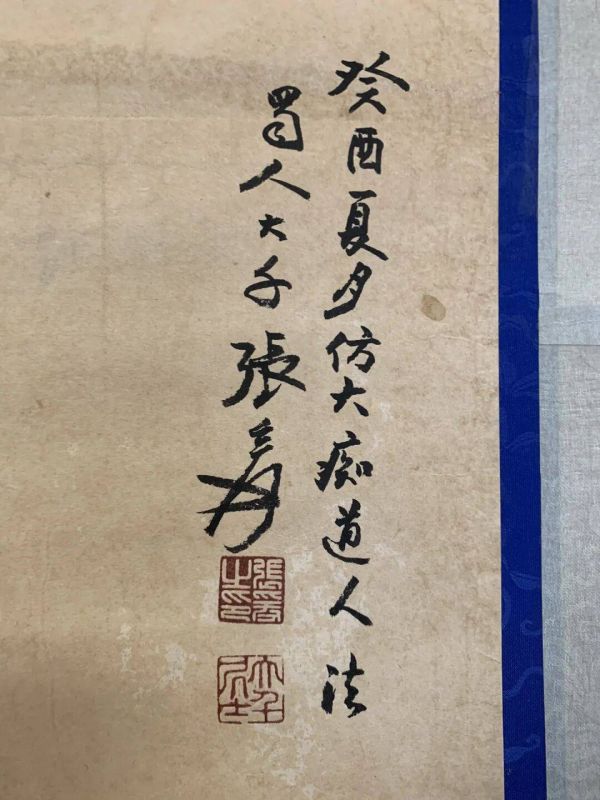 癸酉夏夕仿大癡道人法
蜀人大千張爰
張爰之印
大千居士